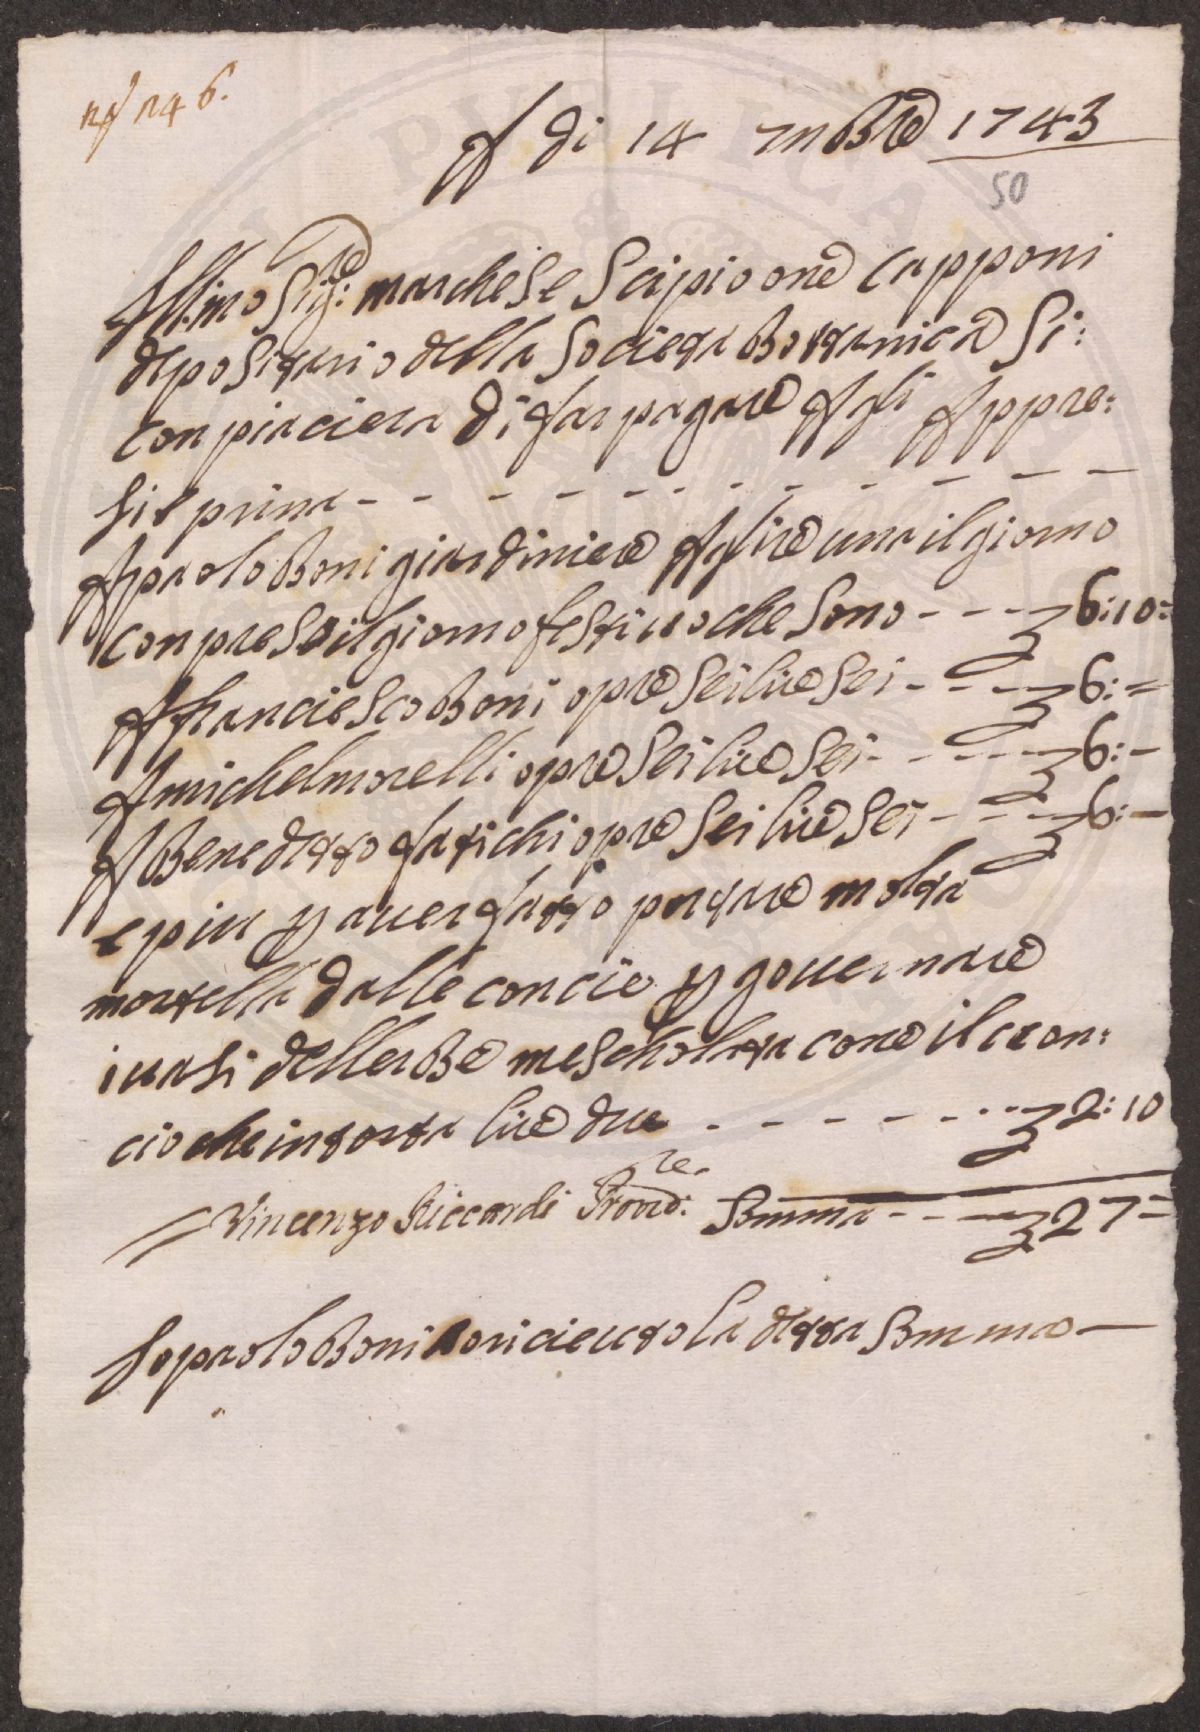 no 146.
A di 14 7mBre 1743
50
Ill.mo Sig.re: marchese Scipioone Capponi
depositario della Societa Bottanica Si:
conpiaciera di far pagare Agli Appre:
si e prima - - - - - - - - - - - -
A paolo Boni giardiniere A lire una il giorno
conpreso il giorno festiuo che sono - - - £ 6:10:
A franciesco Boni opre sei lire sei - - - £ 6:=
A michel morelli opre sei lire sei - - - - £ 6:-
A Benedetto fatichi opre sei lire sei - - - £ 6:-
e piu p auer fatto portare molta
mortella dalle concie p gouernare
i uasi dellerbe mescholata cone il con:
cio che inporta lire due - - - - - - £ 2:10
Vincenzo Riccardi Provd:re Somma - - - £ 27=
Io paolo Boni o riceuto la detta Somma -